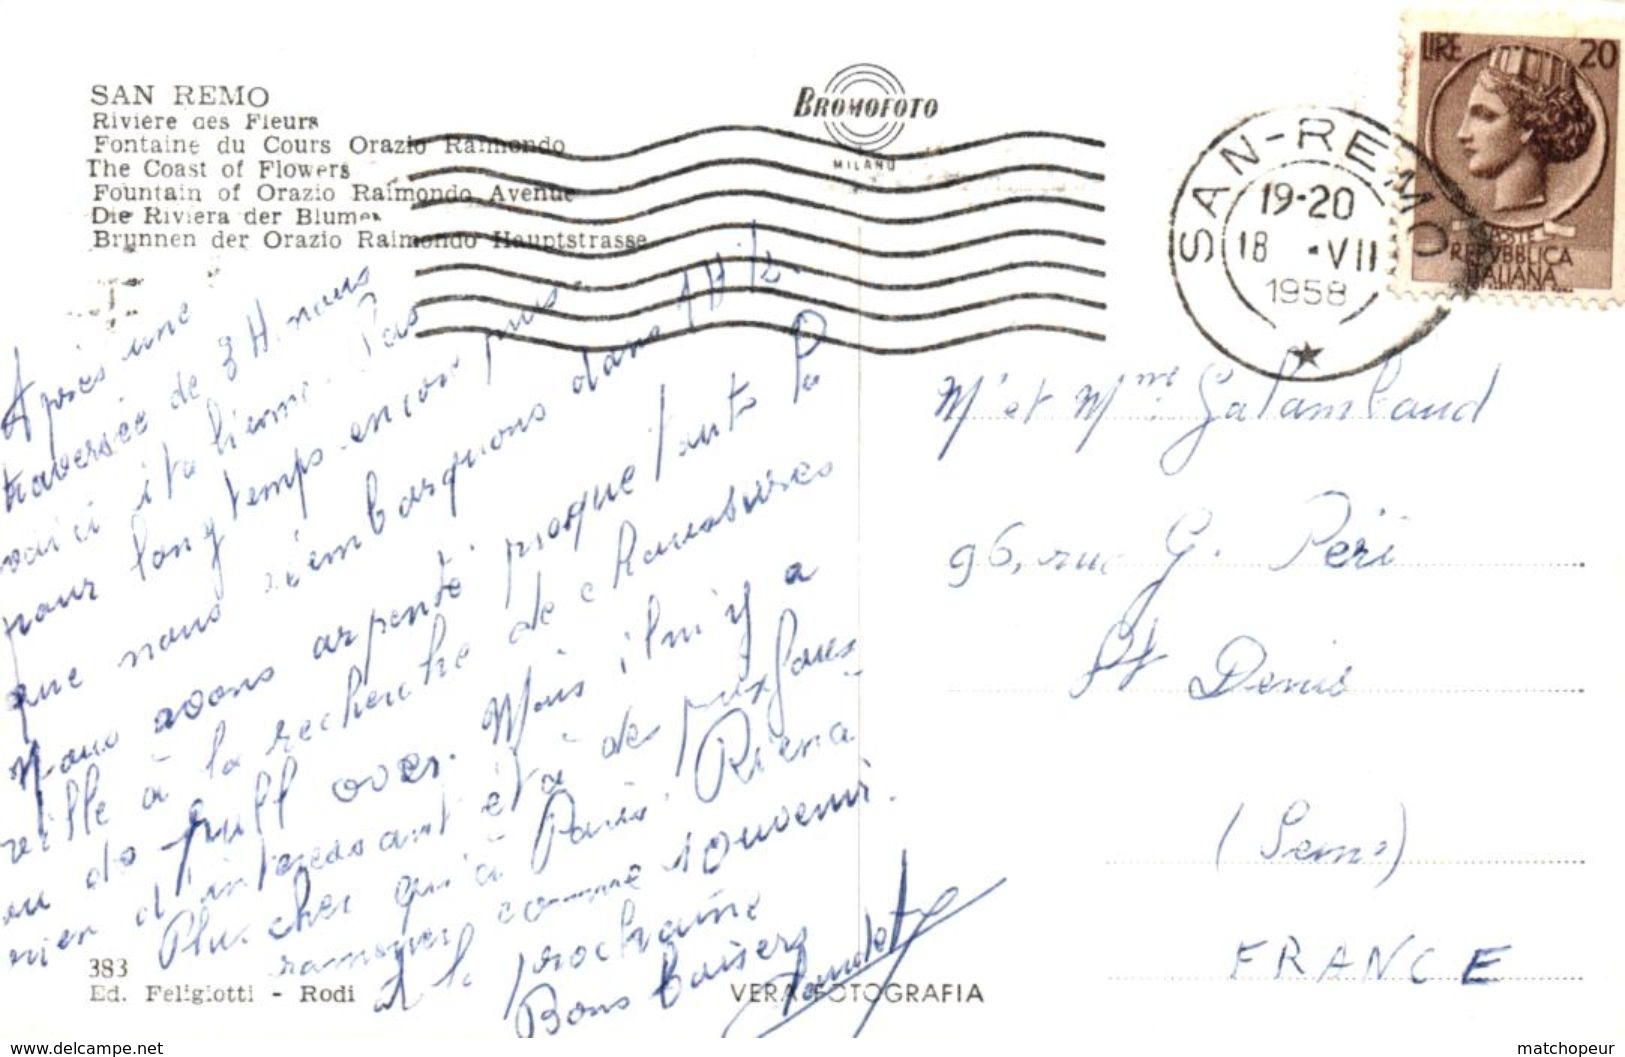 SAN REMO
Rivière des Fleurs
Fontaine du Cours Orazio Raimondo
The Coast of Flowers
Fountain of Orazio Raimondo Avenue
Die Riviera der Blumen
Brunnen der Orazio Raimondo Hauptstrasse
BROMOFOTO
MILANO
SAN-REMO
19-20
18 -VII
1958
LIRE 20
POSTE
REPVBBLICA
ITALIANA
Après une
traversée de 3 H. nous
voici italiens. Pas
pour longtemps encore puis
que nous rembarquons dans 1 H 1/2
Nous avons arpenté presque toute la
ville à la recherche de chaussures
ou de pull over. Mais il n'y a
rien d'intéressant et à de prix fous
Plus cher qu'à Paris. Rien à
ramener comme souvenir.
A la prochaine
Bons baisers
Mr et Mme Galambaud
96, rue G. Péri
St Denis
(Seine)
FRANCE
383
Ed. Feligiotti - Rodi
VERA FOTOGRAFIA
www.delcampe.net
matchopeur